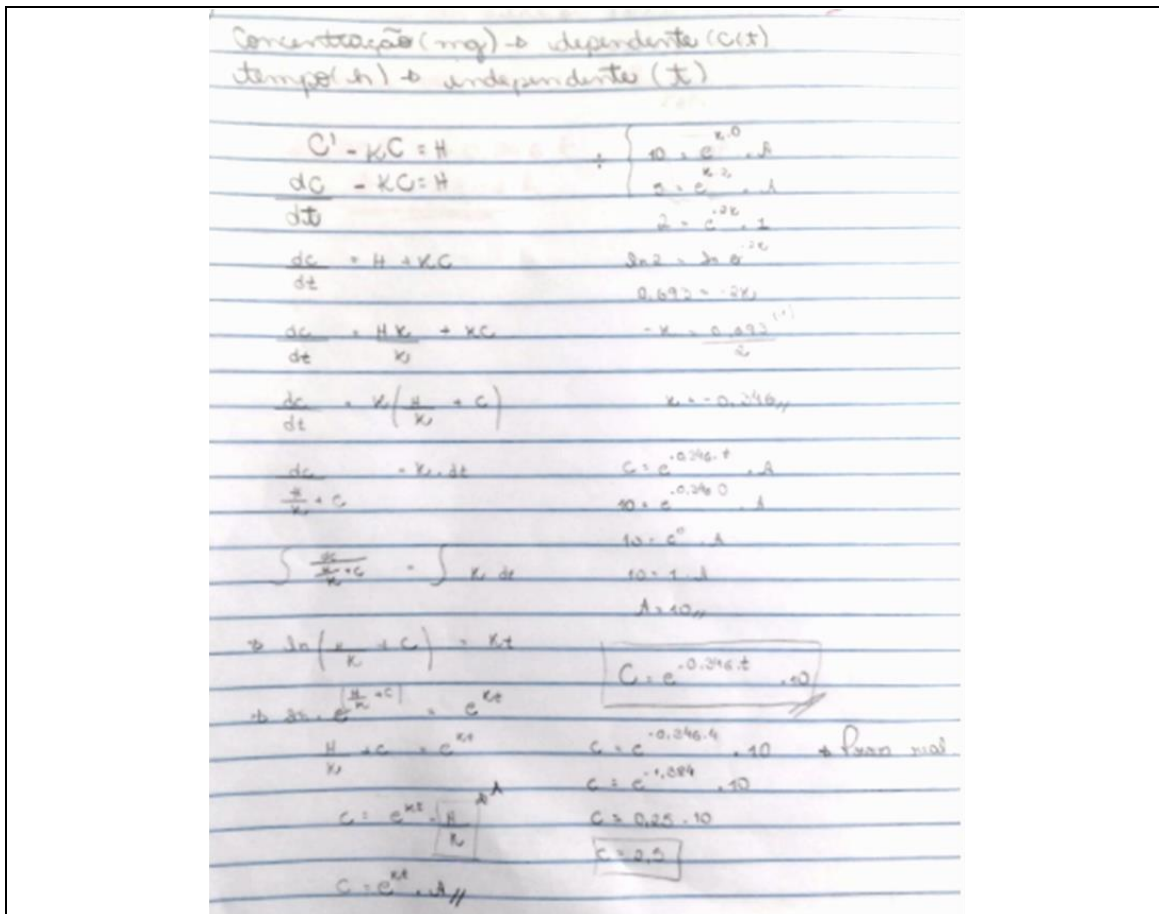 Concentração (mg) → dependente (C(t)
tempo (h) → independente (t)
C' - KC = H
dC/dt - KC = H
dc/dt = H + KC
dc/dt = HK/K + KC
dc/dt = K(H/K + C)
dc/(H/K + C) = K.dt
∫ dc/(H/K + C) = ∫ K dt
→ ln(H/K + C) = Kt
→ ln.e^(H/K + C) = e^Kt
H/K + C = e^Kt
C = e^Kt . H/K → A
C = e^Kt . A //
÷ { 10 = e^K.0 . A
5 = e^K.2 . A
2 = e^-2K . 1
ln 2 = ln e^-2K
0,693 = -2K
-K = 0,693/2 (-1)
K = -0,346 //
C = e^-0,346.t . A
10 = e^-0,346.0 . A
10 = e^0 . A
10 = 1 . A
A = 10 //
C = e^-0,346.t . 10 //
C = e^-0,346.4 . 10
C = e^-1,384 . 10
C = 0,25 . 10
C = 2,5